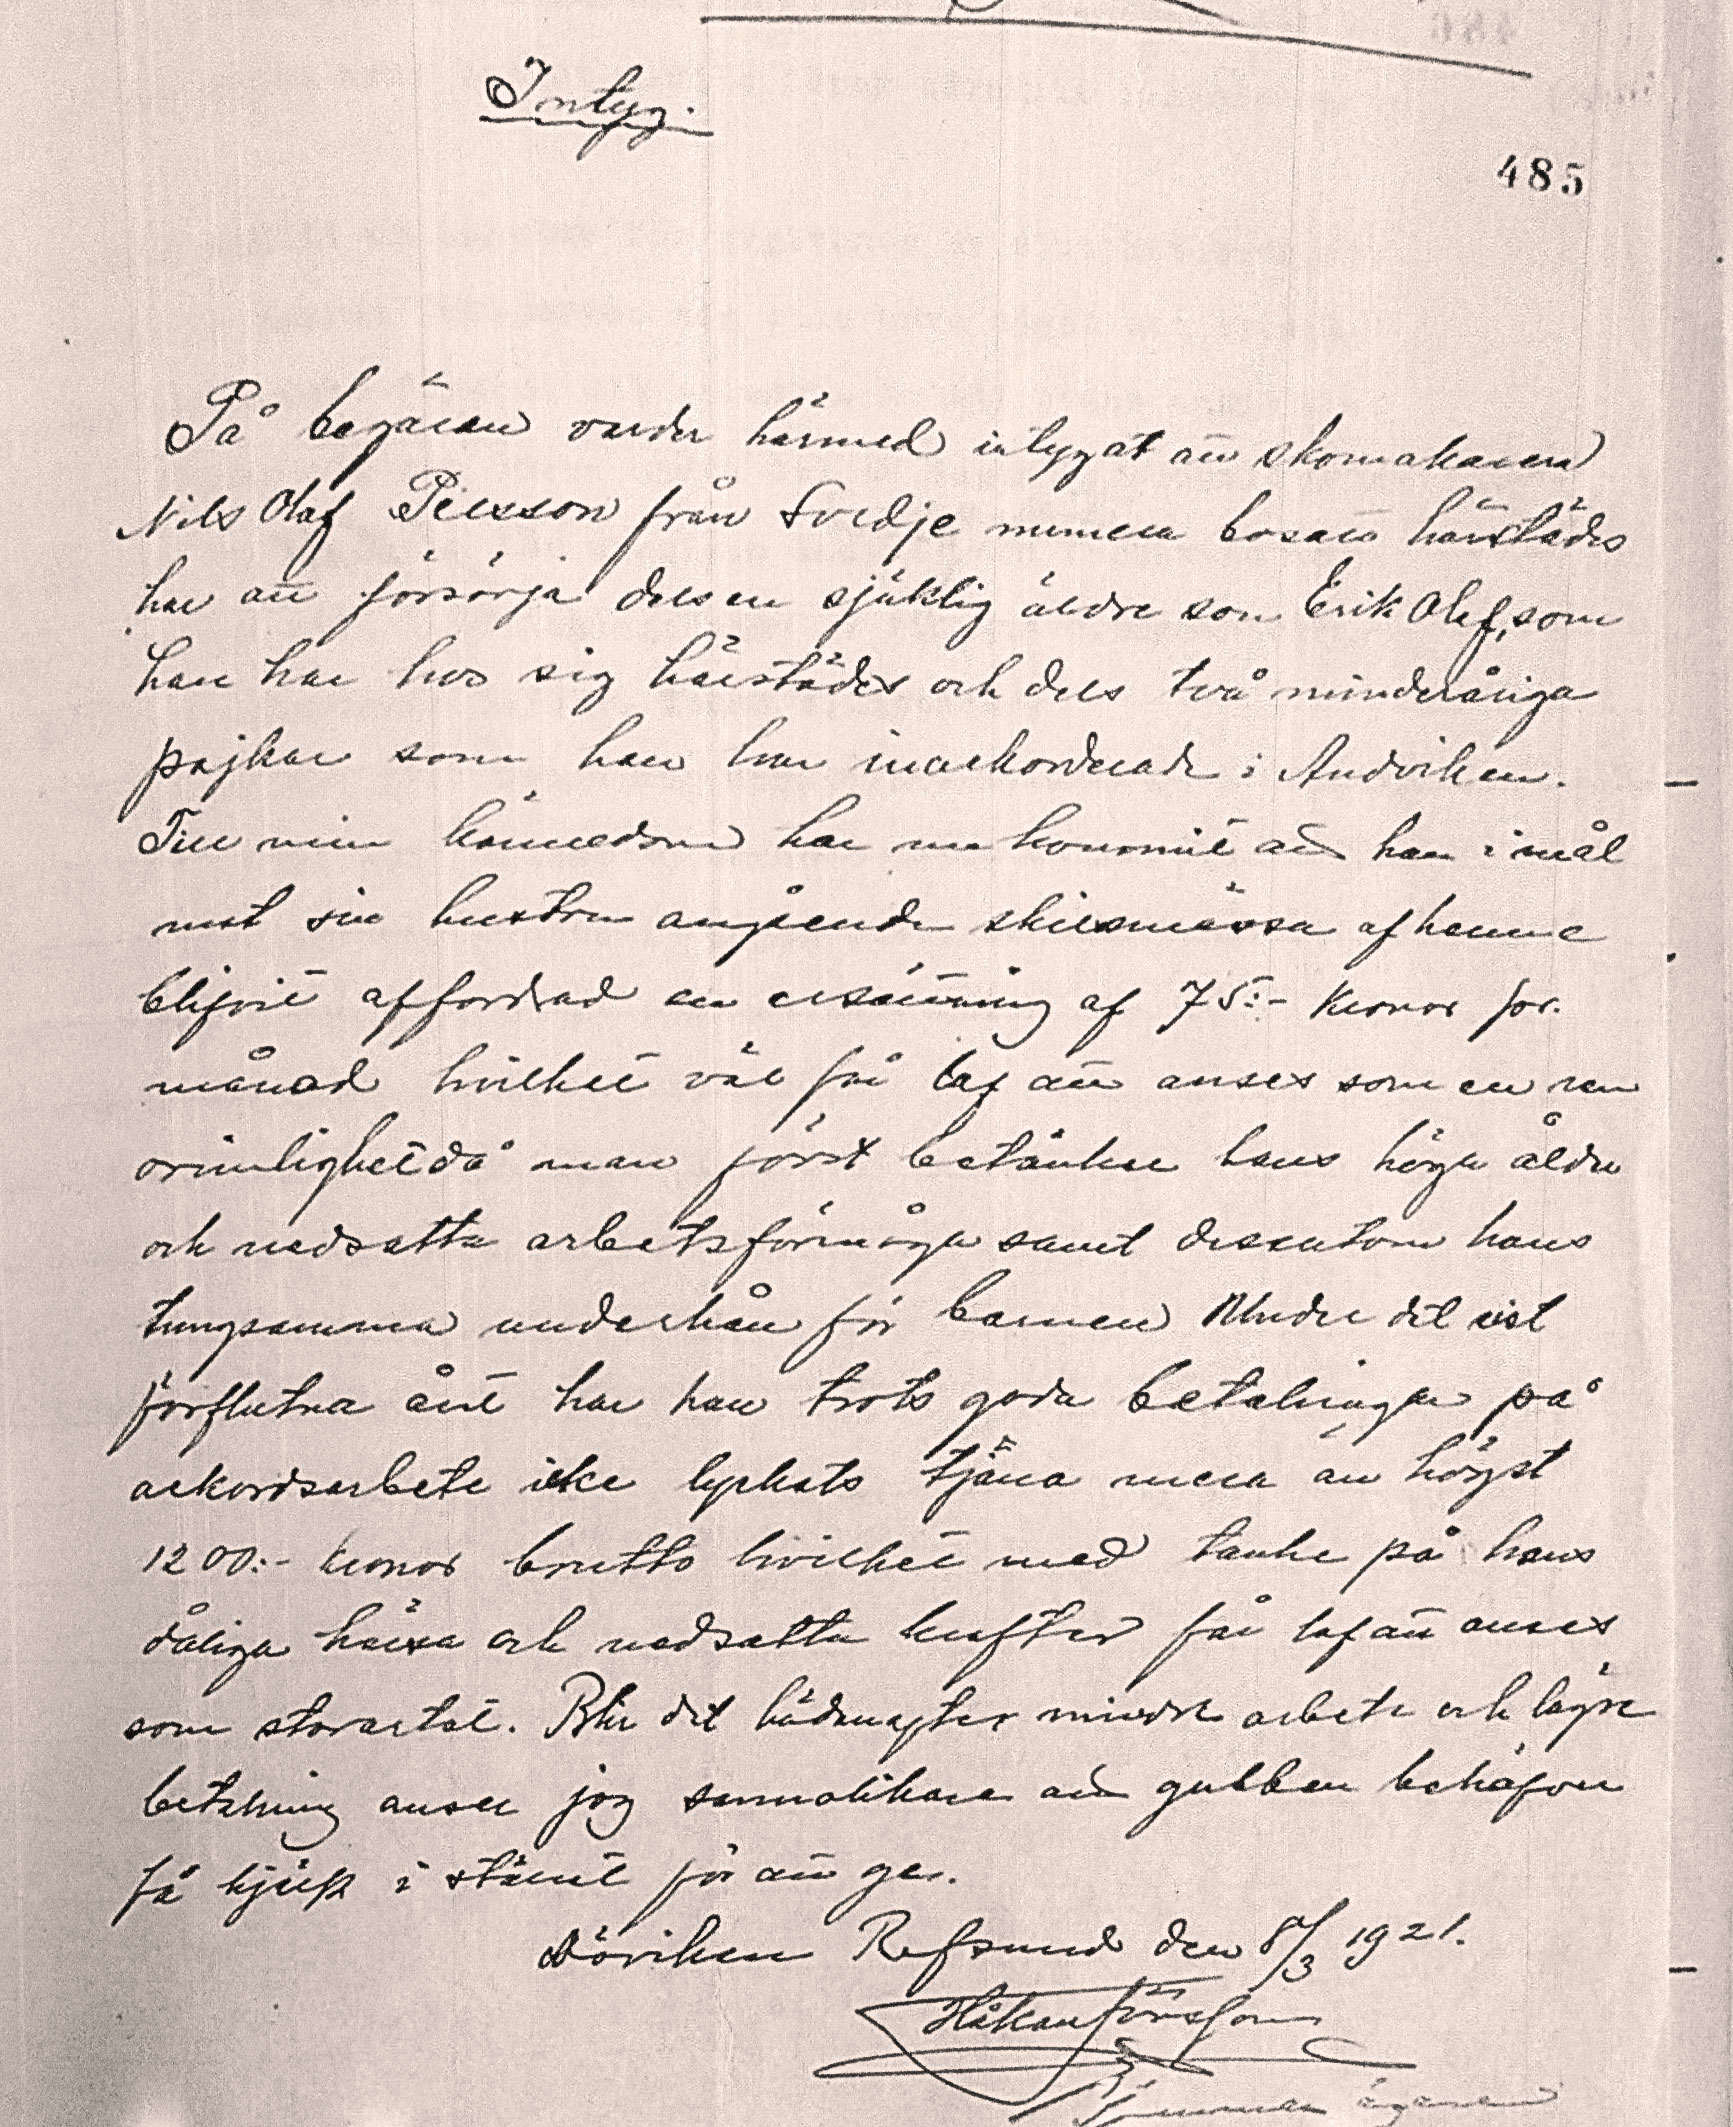 Intyg.
485
På begäran varder härmed intygat att skomakaren
Nils Olof Persson från Svedje numera bosatt härstädes
har att försörja dels en sjuklig äldre son Erik Olof, som
han har hos sig härstädes och dels två minderåriga
pojkar som han har inackorderade i Andviken.
Till min kännedom har nu kommit att han i mål
mot sin hustru angående skilsmässa af henne
blifvit affordrad en ersättning af 75:- Kronor för.
månad hvilket väl får laf att anses som en ren
orimlighet då man först betänker hans höga ålder
och nedsatta arbetsförmåga samt dessutom hans
tungsamma underhåll för barnen Under det sist
förflutna året har han trots goda betalningar på
ackordsarbete icke lyckats tjäna mera än högst
1200:- kronor brutto hvilket med tanke på hans
dåliga hälsa och nedsatta krafter får laf att anses
som storartat. Blir det hädanefter mindre arbete och lägre
betalning anser jag sannolikare att gubben behöfver
få hjälp i stället för att ge.
Döviken Refsund den 8/3 1921.
Håkan Jönsson